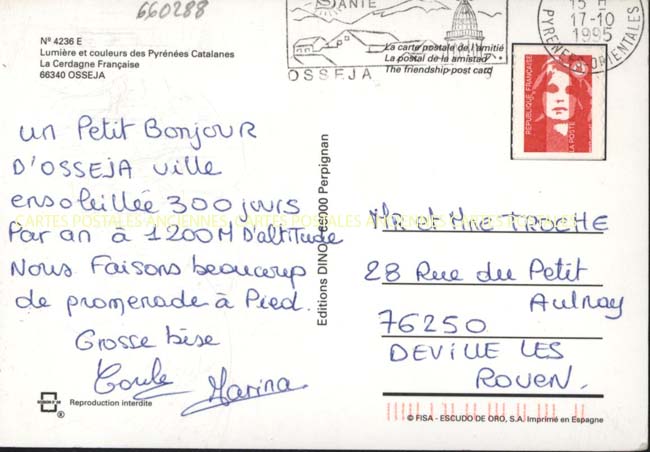 660288
SANTE
OSSEJA
15 H
17-10
1995
PYRENEES ORIENTALES
Nº 4236 E
Lumière et couleurs des Pyrénées Catalanes
La Cerdagne Française
66340 OSSEJA
La carte postale de l'amitié
La postal de la amistad
The friendship post card
REPUBLIQUE FRANÇAISE
LA POSTE
un Petit Bonjour
D'OSSEJA ville
ensoleillée 300 jours
Par an à 1200M D'altitude
Nous Faisons beaucoup
de promenade à Pied.
Grosse bise
Marina
CARTES POSTALES ANCIENNES CARTES POSTALES ANCIENNES
Editions DINO - 66000 Perpignan
Mr et Mme TROCHE
28 Rue du Petit
Aulnay
76250
DEVILLE LES
ROUEN.
Reproduction interdite
®
© FISA - ESCUDO DE ORO, S.A. Imprimé en Espagne